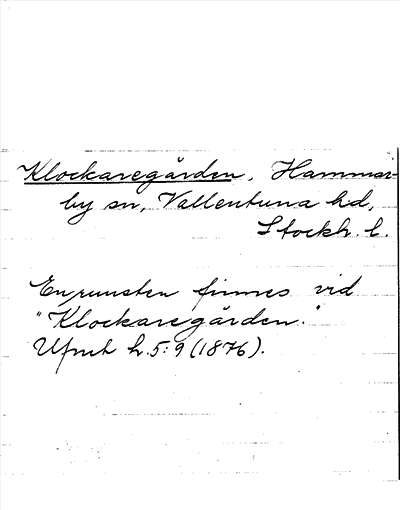 Klockaregården, Hammar-
by sn, Vallentuna hd,
Stockh. l.
En runsten finnes vid
"Klockaregården."
Ufmt h. 5: 9 (1876).